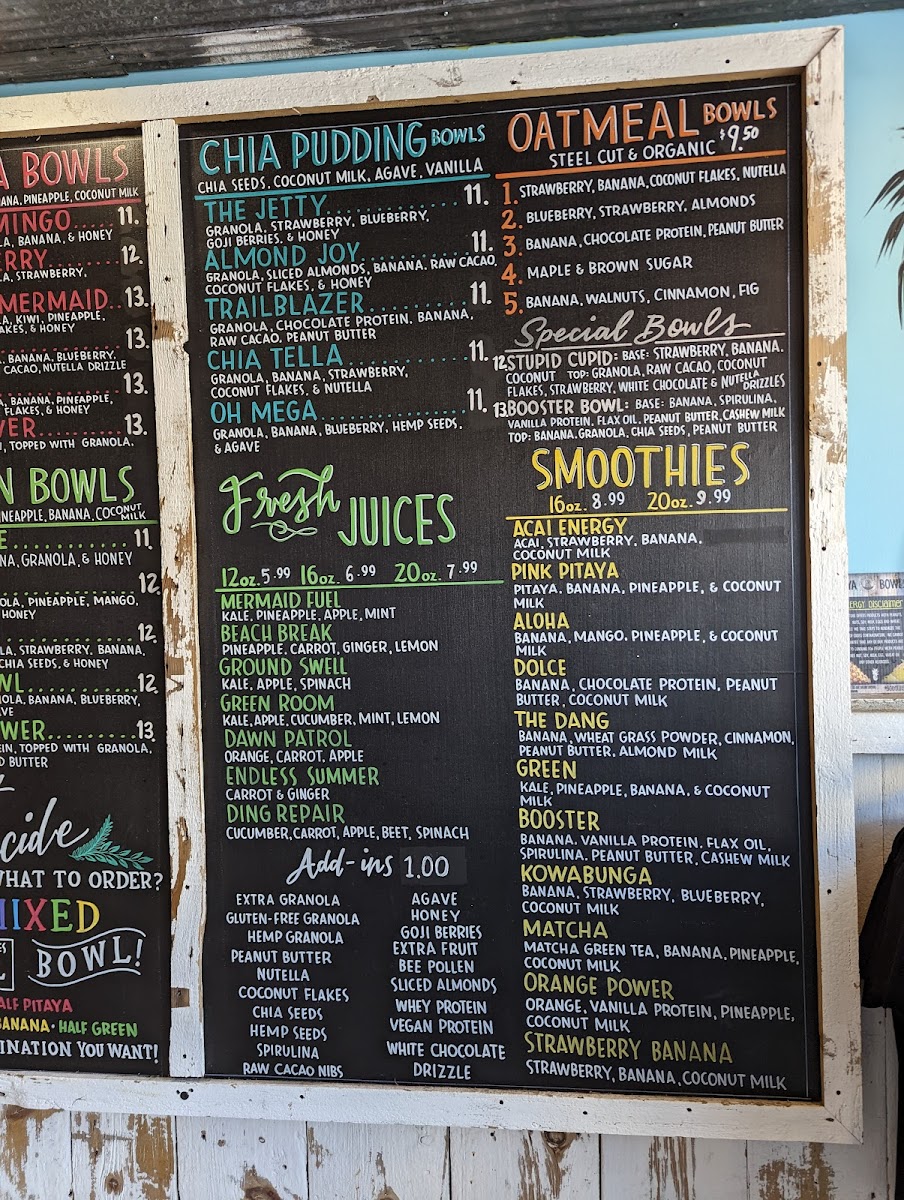 A BOWLS
ANA, PINEAPPLE, COCONUT MILK
MINGO..... 11.
LA, BANANA, & HONEY
ERRY..... 12.
LA, STRAWBERRY,
MERMAID.. 13.
LA, KIWI, PINEAPPLE,
AKES, & HONEY
13.
, BANANA, BLUEBERRY,
CACAO, NUTELLA DRIZZLE
13.
A, BANANA, PINEAPPLE,
FLAKES, & HONEY
VER..... 13.
, TOPPED WITH GRANOLA,
N BOWLS
INEAPPLE, BANANA, COCONUT MILK
E............ 11.
NA, GRANOLA, & HONEY
12.
OLA, PINEAPPLE, MANGO,
HONEY
12.
LA, STRAWBERRY, BANANA,
CHIA SEEDS, & HONEY
WL.......... 12.
OLA, BANANA, BLUEBERRY,
VE
OWER........ 13
EIN, TOPPED WITH GRANOLA,
D BUTTER
cide
WHAT TO ORDER?
MIXED
BOWL!
ALF PITAYA
BANANA • HALF GREEN
INATION YOU WANT!
CHIA PUDDING BOWLS
CHIA SEEDS, COCONUT MILK, AGAVE, VANILLA
THE JETTY............ 11.
GRANOLA, STRAWBERRY, BLUEBERRY,
GOJI BERRIES, & HONEY
ALMOND JOY.......... 11.
GRANOLA, SLICED ALMONDS, BANANA, RAW CACAO,
COCONUT FLAKES, & HONEY
TRAILBLAZER......... 11.
GRANOLA, CHOCOLATE PROTEIN, BANANA,
RAW CACAO, PEANUT BUTTER
CHIA TELLA........... 11.
GRANOLA, BANANA, STRAWBERRY,
COCONUT FLAKES, & NUTELLA
OH MEGA............. 11.
GRANOLA, BANANA, BLUEBERRY, HEMP SEEDS,
& AGAVE
Fresh JUICES
12oz. 5.99 16oz. 6.99 20oz. 7.99
MERMAID FUEL
KALE, PINEAPPLE, APPLE, MINT
BEACH BREAK
PINEAPPLE, CARROT, GINGER, LEMON
GROUND SWELL
KALE, APPLE, SPINACH
GREEN ROOM
KALE, APPLE, CUCUMBER, MINT, LEMON
DAWN PATROL
ORANGE, CARROT, APPLE
ENDLESS SUMMER
CARROT & GINGER
DING REPAIR
CUCUMBER, CARROT, APPLE, BEET, SPINACH
Add-ins 1.00
EXTRA GRANOLA
GLUTEN-FREE GRANOLA
HEMP GRANOLA
PEANUT BUTTER
NUTELLA
COCONUT FLAKES
CHIA SEEDS
HEMP SEEDS
SPIRULINA
RAW CACAO NIBS
AGAVE
HONEY
GOJI BERRIES
EXTRA FRUIT
BEE POLLEN
SLICED ALMONDS
WHEY PROTEIN
VEGAN PROTEIN
WHITE CHOCOLATE
DRIZZLE
OATMEAL BOWLS
STEEL CUT & ORGANIC $9.50
1. STRAWBERRY, BANANA, COCONUT FLAKES, NUTELLA
2. BLUEBERRY, STRAWBERRY, ALMONDS
3. BANANA, CHOCOLATE PROTEIN, PEANUT BUTTER
4. MAPLE & BROWN SUGAR
5. BANANA, WALNUTS, CINNAMON, FIG
Special Bowls
12. STUPID CUPID: BASE: STRAWBERRY, BANANA,
COCONUT TOP: GRANOLA, RAW CACAO, COCONUT
FLAKES, STRAWBERRY, WHITE CHOCOLATE & NUTELLA DRIZZLES
13. BOOSTER BOWL: BASE: BANANA, SPIRULINA,
VANILLA PROTEIN, FLAX OIL, PEANUT BUTTER, CASHEW MILK
TOP: BANANA, GRANOLA, CHIA SEEDS, PEANUT BUTTER
SMOOTHIES
16oz. 8.99 20oz. 9.99
ACAI ENERGY
ACAI, STRAWBERRY, BANANA,
COCONUT MILK
PINK PITAYA
PITAYA, BANANA, PINEAPPLE, & COCONUT
MILK
ALOHA
BANANA, MANGO, PINEAPPLE, & COCONUT
MILK
DOLCE
BANANA, CHOCOLATE PROTEIN, PEANUT
BUTTER, COCONUT MILK
THE DANG
BANANA, WHEAT GRASS POWDER, CINNAMON,
PEANUT BUTTER, ALMOND MILK
GREEN
KALE, PINEAPPLE, BANANA, & COCONUT
MILK
BOOSTER
BANANA, VANILLA PROTEIN, FLAX OIL,
SPIRULINA, PEANUT BUTTER, CASHEW MILK
KOWABUNGA
BANANA, STRAWBERRY, BLUEBERRY,
COCONUT MILK
MATCHA
MATCHA GREEN TEA, BANANA, PINEAPPLE,
COCONUT MILK
ORANGE POWER
ORANGE, VANILLA PROTEIN, PINEAPPLE,
COCONUT MILK
STRAWBERRY BANANA
STRAWBERRY, BANANA, COCONUT MILK
BOWL
ERGY DISCLAIMER